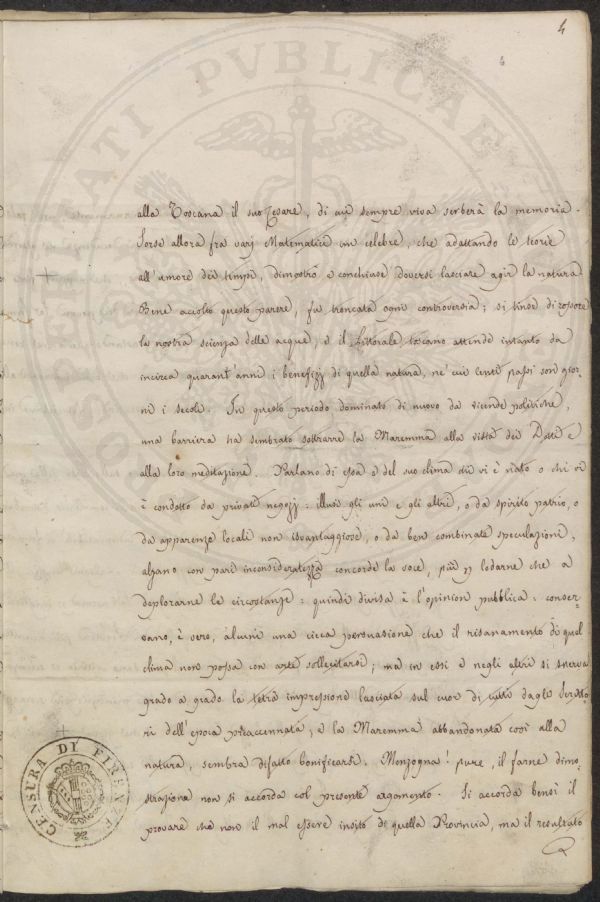 4
alla Toscana il suo Cesare, di cui sempre viva serberà la memoria.
Sorse allora fra varj Matematici un celebre, che adattando le teorie
all'umore dei tempi, dimostrò e conchiuse doversi lasciare agir la natura.
Bene accolto questo parere, fu troncata ogni controversia; si tinse di rossore
la nostra scienza delle acque, e il Littorale toscano attende intanto da
incirca quarant'anni i benefizj di quella natura, ne' cui lenti passi son gior-
ni i secoli. In questo periodo dominato di nuovo da vicende politiche,
una barriera ha sembrato sottrarre la Maremma alla vista dei Dotti e
alla loro meditazione. Parlano di essa e del suo clima chi vi è nato o chi vi
è condotto da privati negozj: illusi gli uni e gli altri, o da spirito patrio, o
da apparenze locali non isvantaggiose, o da ben combinate speculazioni,
alzano con pari inconsideratezza concorde la voce, più p lodarne che a
deplorarne le circostanze: quindi divisa è l'opinion pubblica: conser-
vano, è vero, alcuni una cieca persuasione che il risanamento di quel
clima non possa con arte sollecitarsi; ma in essi e negli altri si snerva
grado a grado la tetra impressione lasciata sul cuor di tutti dagli Scritto-
ri dell'epoca preaccennata; e la Maremma abbandonata così alla
natura, sembra difatto bonificarsi. Menzogna! pure, il farne dimo-
strazione non si accorda col presente argomento. Si accorda bensì il
provare che non il mal essere insito di quella Provincia, ma il resultato
OSPITII PUBLICAE
CENSURA DI FIRENZE